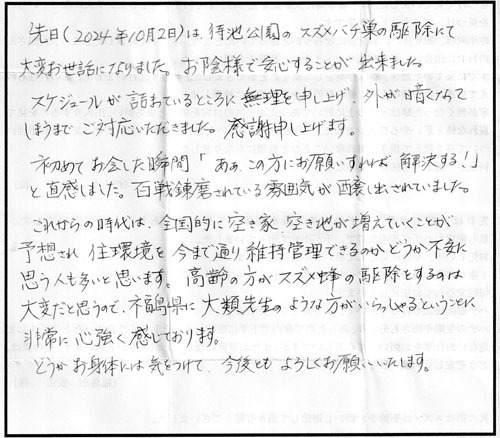 先日(2024年10月2日)は、待池公園のスズメバチ巣の駆除にて
大変お世話になりました。お陰様で安心することが出来ました。
スケジュールが詰まっているところに無理を申し上げ、外が暗くなって
しまうまでご対応いただきました。感謝申し上げます。
初めてお会した瞬間「あぁ、この方にお願いすれば解決する!」
と直感しました。百戦錬磨されている雰囲気が醸し出されていました。
これからの時代は、全国的に空き家、空き地が増えていくことが
予想され 住環境を今まで通り維持管理できるのかどうか不安に
思う人も多いと思います。高齢の方がスズメ蜂の駆除をするのは
大変だと思うので、福島県に大類先生のような方がいらっしゃるということに、
非常に心強く感じております。
どうかお身体には気をつけて、今後ともよろしくお願いいたします。